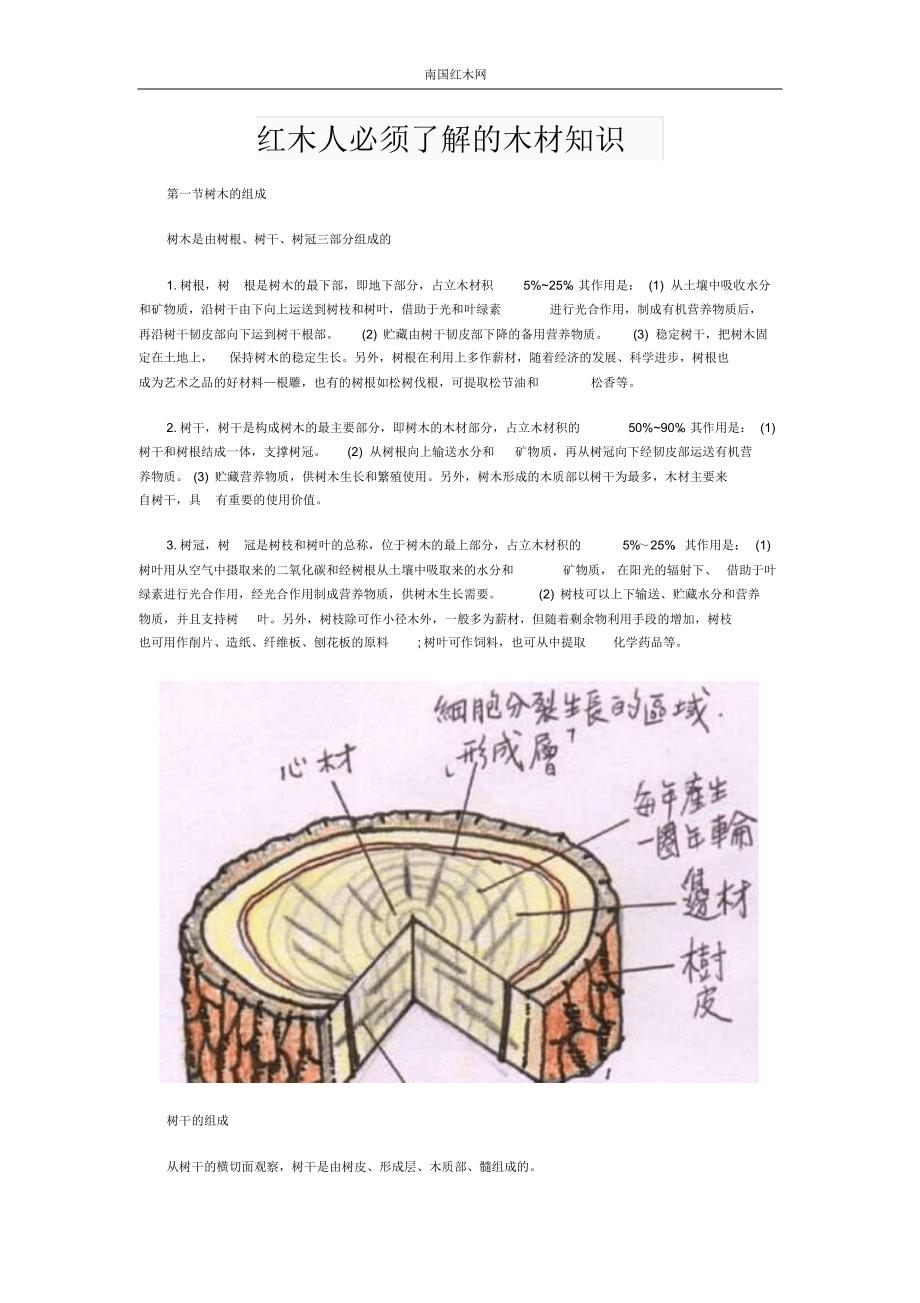 南国红木网
红木人必须了解的木材知识
第一节树木的组成
树木是由树根、树干、树冠三部分组成的
1. 树根，树 根是树木的最下部，即地下部分，占立木材积 5%~25%. 其作用是： (1) 从土壤中吸收水分
和矿物质，沿树干由下向上运送到树枝和树叶，借助于光和叶绿素 进行光合作用，制成有机营养物质后，
再沿树干韧皮部向下运到树干根部。 (2) 贮藏由树干韧皮部下降的备用营养物质。 (3) 稳定树干，把树木固
定在土地上， 保持树木的稳定生长。另外，树根在利用上多作薪材，随着经济的发展、科学进步，树根也
成为艺术之品的好材料—根雕，也有的树根如松树伐根，可提取松节油和 松香等。
2. 树干，树干是构成树木的最主要部分，即树木的木材部分，占立木材积的 50%~90%. 其作用是： (1)
树干和树根结成一体，支撑树冠。 (2) 从树根向上输送水分和 矿物质，再从树冠向下经韧皮部运送有机营
养物质。 (3) 贮藏营养物质，供树木生长和繁殖使用。另外，树木形成的木质部以树干为最多，木材主要来
自树干，具 有重要的使用价值。
3. 树冠，树 冠是树枝和树叶的总称，位于树木的最上部分，占立木材积的 5%~25%. 其作用是： (1)
树叶用从空气中摄取来的二氧化碳和经树根从土壤中吸取来的水分和 矿物质， 在阳光的辐射下、 借助于叶
绿素进行光合作用，经光合作用制成营养物质，供树木生长需要。 (2) 树枝可以上下输送、贮藏水分和营养
物质，并且支持树 叶。另外，树枝除可作小径木外，一般多为薪材，但随着剩余物利用手段的增加，树枝
也可用作削片、造纸、纤维板、刨花板的原料 ; 树叶可作饲料，也可从中提取 化学药品等。
細胞分裂生長的區域.
「形成層」
心材
每年產生
一圈年輪
邊材
樹
皮
树干的组成
从树干的横切面观察，树干是由树皮、形成层、木质部、髓组成的。